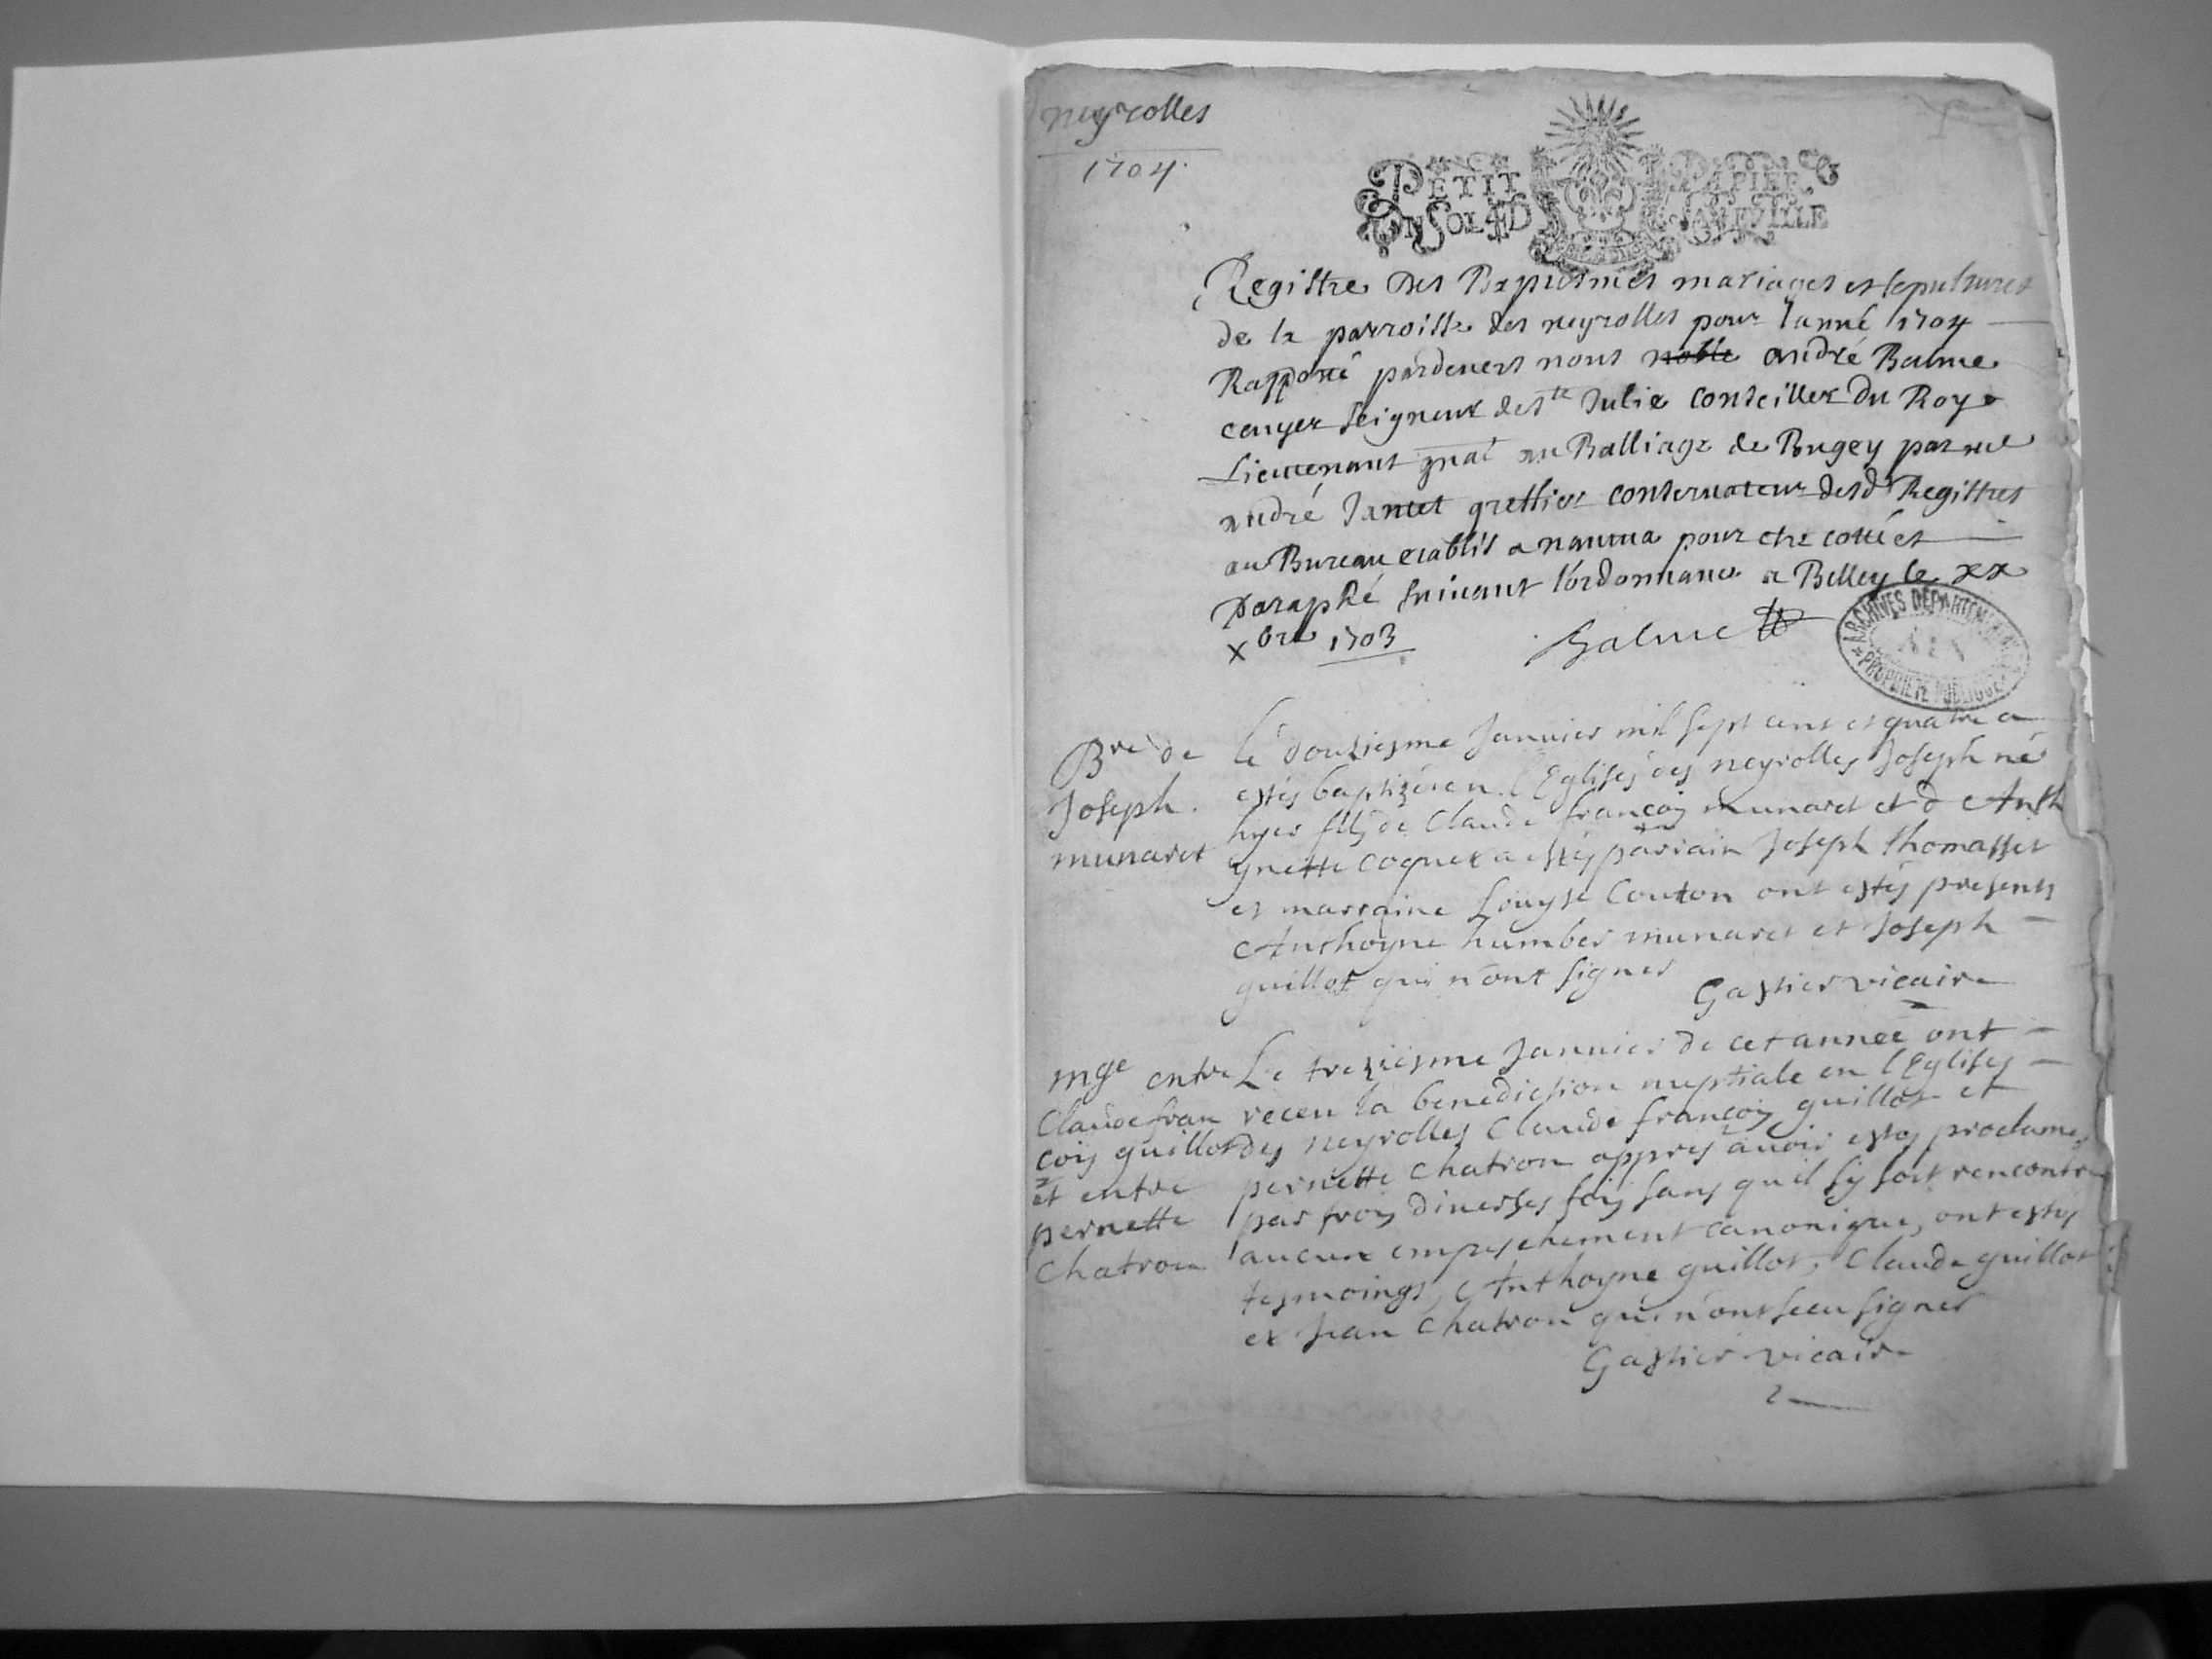 neyrolles
1704
PETIT PAPIER
UN SOL 4 D LA FEVILLE
Registre des Baptesmes mariages et sepultures
de la parroisse des neyrolles pour lanné 1704
Rapporté pardevers nous noble andré Balme
ecuyer seigneur de ste Julie conseiller du Roy
Lieutenant gnal au Balliage de Bugey par me
andré Jantet greffier conservateur desd Registres
au Bureau etablis a nantua pour etre cotté et
paraphé suivant l'ordonnance a Belley le xx
xbre 1703
Balme
ARCHIVES DEPARTEMENTALES
AIN
PROPRIETE PUBLIQUE
Bme de
Joseph
munaret
le douziesme Januier mil sept cent et quatre a
estés baptizé en l'Eglises des neyrolles Joseph né
hyer fils de Claude françois munaret et d Anth
ynette coquet a estés parrain Joseph thomasset
et marraine Louyse Couton ont estés presents
Anthoyne humber munaret et Joseph
guillot qui n'ont signer
Gastier vicaire
mge entre
Claude fran
çois guillot
et entre
pernette
Chatron
Le treziesme Januier de cet annee ont
receu la benediction nuptiale en l'Eglises
des neyrolles Claude françois guillot et
pernette Chatron appres auoir estés proclames
par trois diuerses fois sans qu'il sy soit rencontré
aucun empeschement canonique, ont estés
tesmoings, Anthoyne guillot, Claude guillot
et Jean Chatron qui n'ont sceu signer
Gastier vicaire